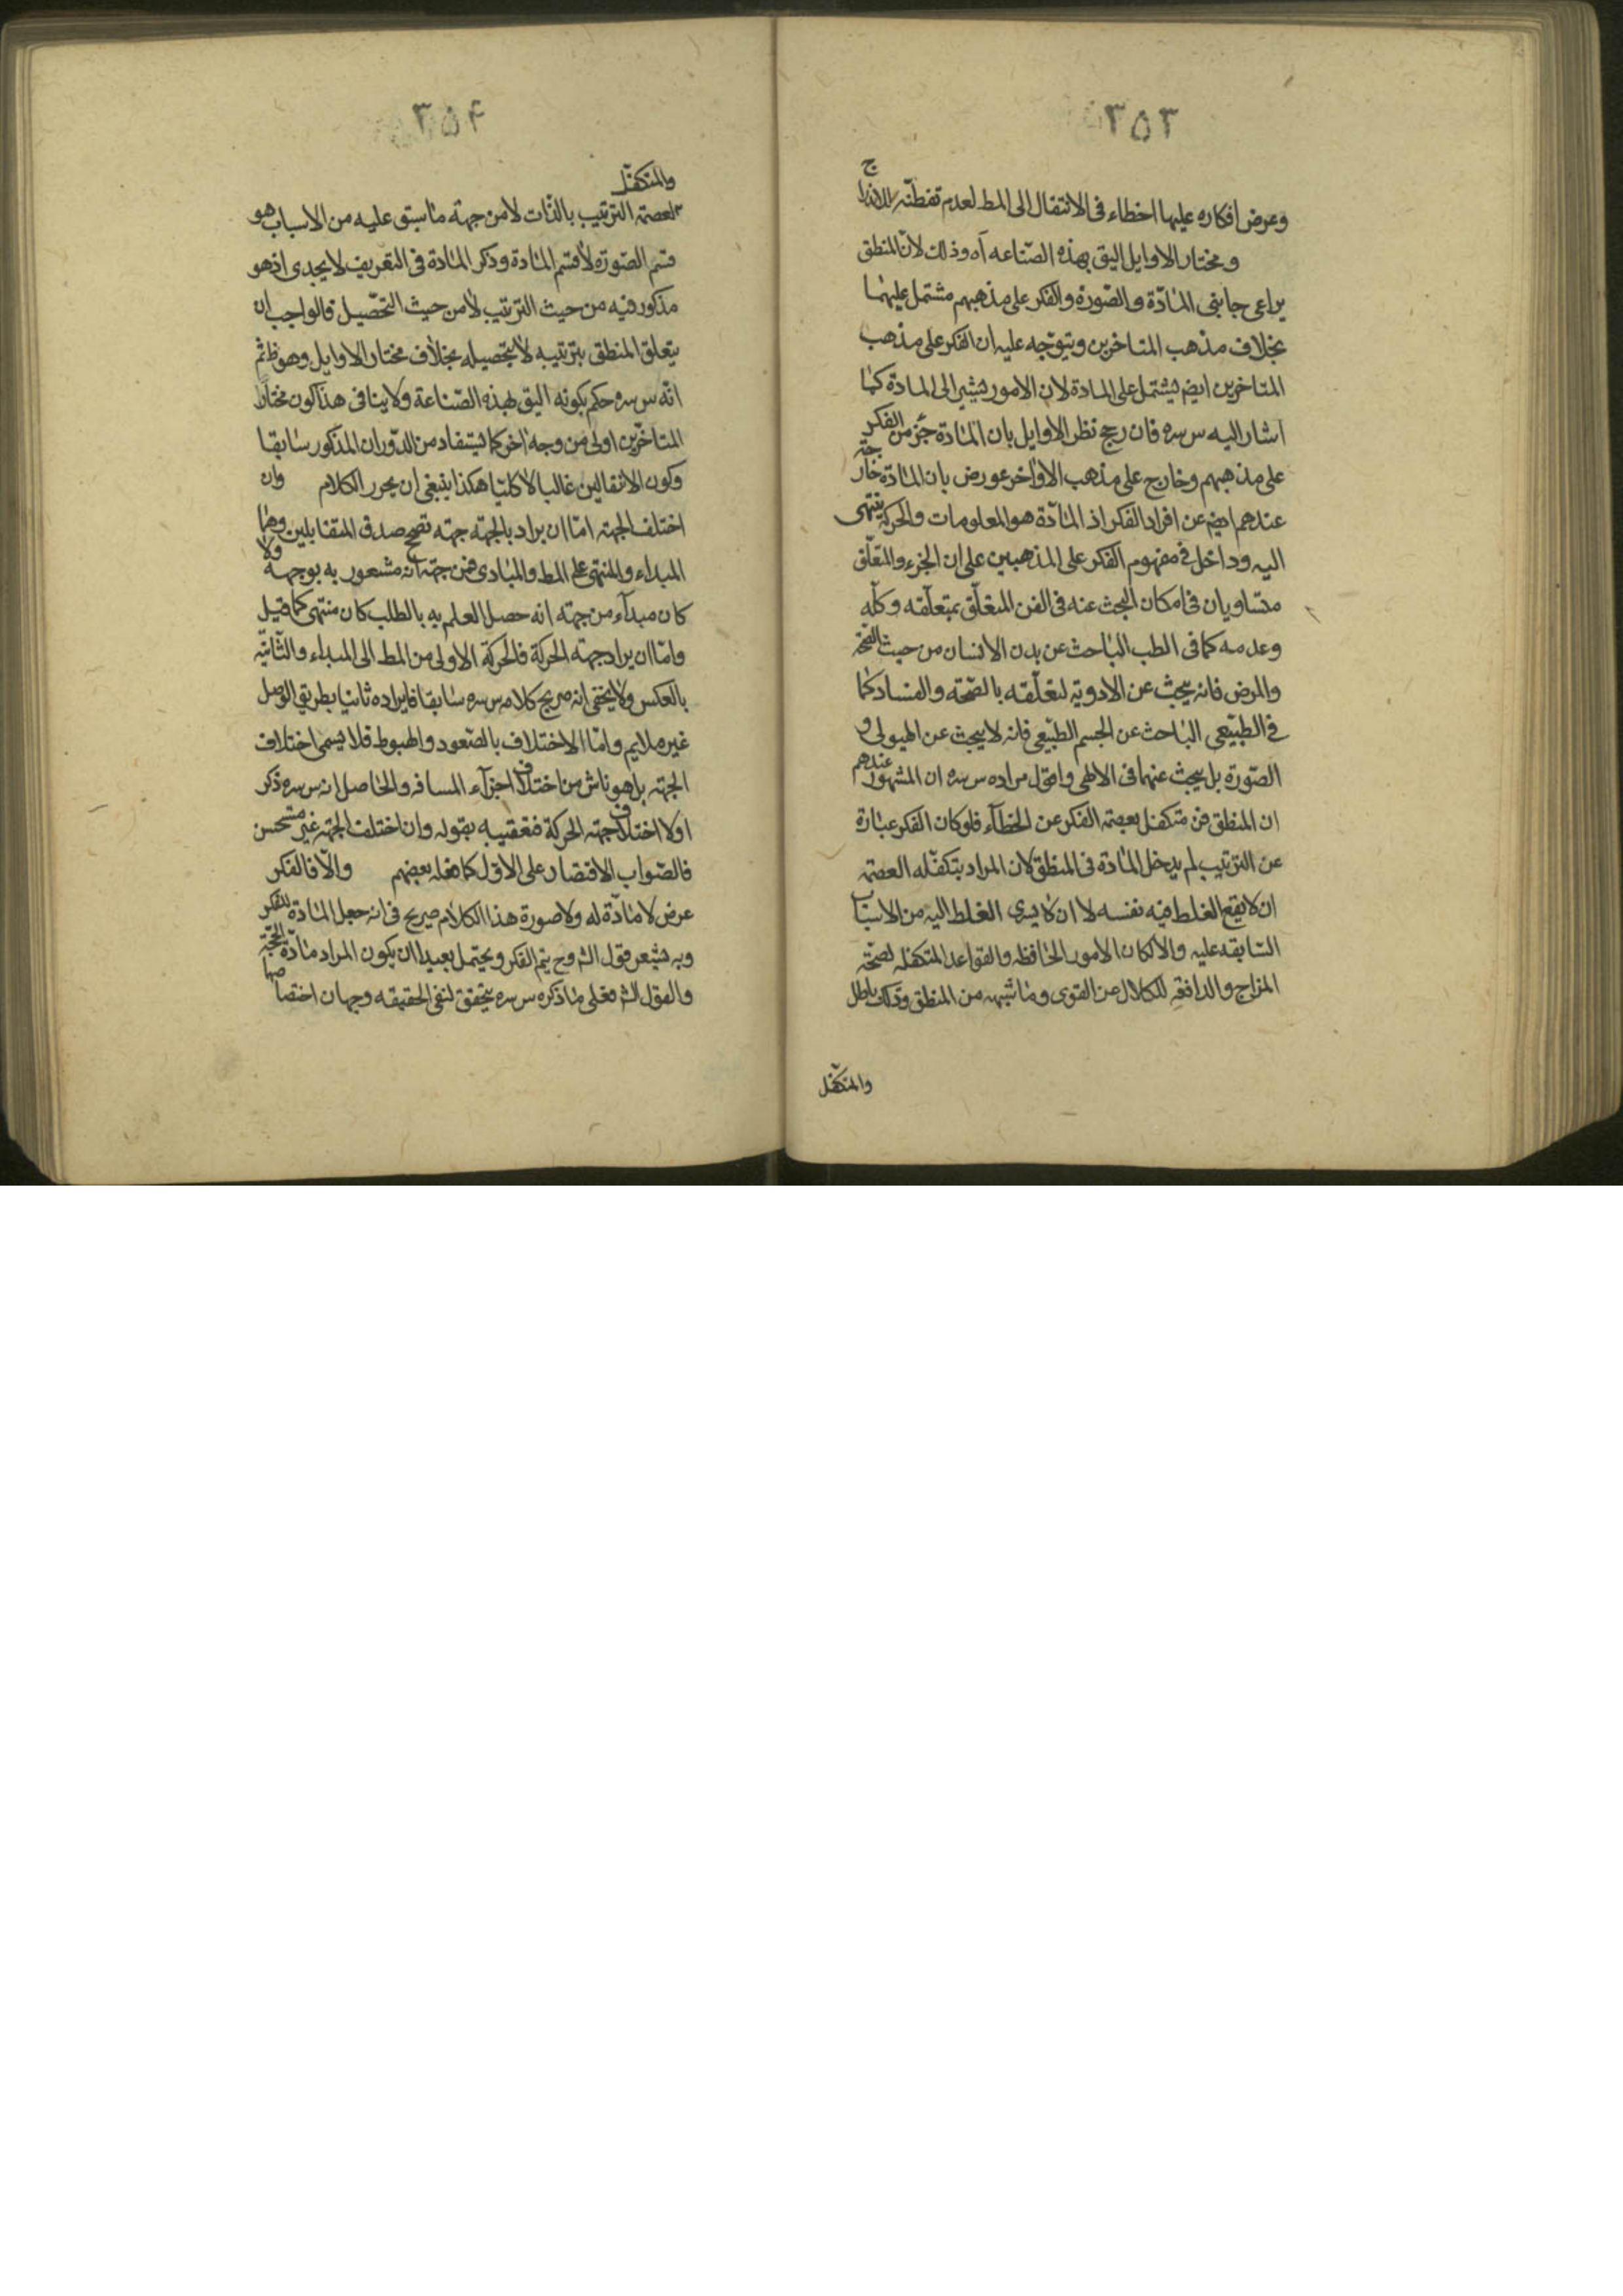 ٣٥٣
وعرض افكاره عليها اخطاء فى الانتقال الى المط لعدم تفطنه
ومختار الاوايل اليق بهذه الصّناعه آه وذلك لانّ المنطق
يراعى جانبى المادّة والصّورة والفكر على مذهبهم مشتمل عليهما
بخلاف مذهب المتاخرين ويتوجّه عليه ان الفكر على مذهب
المتاخرين ايضم يشتمل على المادة لان الامور يشير الى المادة كما
اشار اليه س سره فان رجح نظر الاوايل بان المادة جزء من الفكر
على مذهبهم وخارج على مذهب الاواخر عورض بان المادة خارجة
عندهم ايضم عن افراد الفكر اذ المادّة هو المعلومات والحركة ينتهى
اليه وداخل فى مفهوم الفكر على المذهبين على ان الجزء والمتعلّق
متساويان فى امكان البحث عنه فى الفن المتعلّق بمتعلّقه وكلّه
وعدمه كما فى الطب الباحث عن بدن الانسان من حيث الصّحّة
والمرض فانه يبحث عن الادوية لتعلّقه بالصّحّة والفساد كما
فى الطّبيعى الباحث عن الجسم الطّبيعى فانه لا يبحث عن الهيولى و
الصّورة بل يبحث عنهما فى الالهى واقول مراده س سره ان المشهور عندهم
ان المنطق فن متكفل بعصمة الفكر عن الخطآء فلو كان الفكر عبارة
عن الترتيب لم يدخل المادة فى المنطق لان المراد بتكفّله العصمة
ان لا يقع الغلط فيه نفسه لا ان لا يسرى الغلط اليه من الاسباب
السّابقه عليه والا لكان الامور الحافظه والقواعد المتكفله لصحّة
المزاج والدافعة للكلال عن القوى وما شبهه من المنطق وذلك باطل
والمتكفّل
٣٥۴
والمتكفّل
لعصمة الترتيب بالذّات لا من جهة ما سبق عليه من الاسباب هو
قسم الصّورة لا قسم المادة وذكر المادة فى التعريف لا يجدى اذ هو
مذكور فيه من حيث الترتيب لا من حيث التّحصيل فالواجب ان
يتعلق المنطق بترتيبه لا بتحصيله بخلاف مختار الاوايل وهو ظ ثم
انه س سره حكم بكونه اليق بهذه الصّناعة ولا ينافى هذا كون مختار
المتاخّرين اولى من وجه اخر كما يستفاد من الدّوران المذكور سابقا
وكون الانتقالين غالبا لا كليّا هكذا ينبغى ان يحرر الكلام وان
اختلف الجهة امّا ان يراد بالجهة جهة تصحح صدق المتقابلين وهما
المبداء والمنتهى على المط والمبادى فمن جهة انه مشعور به بوجه ولا
كان مبدآء من جهة انه حصل العلم به بالطلب كان منتهى كما قيل
وامّا ان يراد جهة الحركة فالحركة الاولى من المط الى المبداء والثّانيّه
بالعكس ولا يخفى انه صريح كلامه س سره سابقا فايراده ثانيا بطريق الوصل
غير ملايم وامّا الاختلاف بالصّعود والهبوط فلا يسمى اختلاف
الجهة بل هو ناش من اختلاف اجزآء المسافه والحاصل انه س سره ذكر
اولا اختلاف جهة الحركة فتعقيبه بقوله وان اختلف الجهة غير مستحسن
فالصّواب الاقتصار على الاوّل كما فعله بعضهم والّا فالفكر
عرض لا مادّة له ولا صورة هذا الكلام صريح فى انه جعل المادة للفكر
وبه يشعر قول الشّ وح يتم الفكر ويحتمل بعيدا ان يكون المراد مادّة الحجّة
والقول الشّ فعلى ما ذكره س سره يتحقق لنفى الحقيقه وجهان اختصاصها